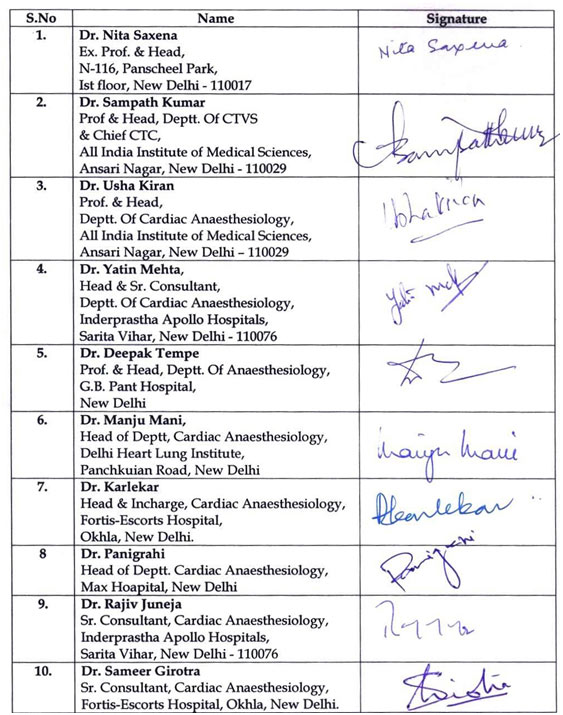 S.No Name Signature
1. Dr. Nita Saxena
Ex. Prof. & Head,
N-116, Panscheel Park,
Ist floor, New Delhi - 110017
Nita Saxena
2. Dr. Sampath Kumar
Prof & Head, Deptt. Of CTVS
& Chief CTC,
All India Institute of Medical Sciences,
Ansari Nagar, New Delhi - 110029
3. Dr. Usha Kiran
Prof. & Head,
Deptt. Of Cardiac Anaesthesiology,
All India Institute of Medical Sciences,
Ansari Nagar, New Delhi – 110029
Usha Kiran
4. Dr. Yatin Mehta,
Head & Sr. Consultant,
Deptt. Of Cardiac Anaesthesiology,
Inderprastha Apollo Hospitals,
Sarita Vihar, New Delhi - 110076
5. Dr. Deepak Tempe
Prof. & Head, Deptt. Of Anaesthesiology,
G.B. Pant Hospital,
New Delhi
6. Dr. Manju Mani,
Head of Deptt, Cardiac Anaesthesiology,
Delhi Heart Lung Institute,
Panchkuian Road, New Delhi
Manju Mani
7. Dr. Karlekar
Head & Incharge, Cardiac Anaesthesiology,
Fortis-Escorts Hospital,
Okhla, New Delhi.
8 Dr. Panigrahi
Head of Deptt. Cardiac Anaesthesiology,
Max Hoapital, New Delhi
9. Dr. Rajiv Juneja
Sr. Consultant, Cardiac Anaesthesiology,
Inderprastha Apollo Hospitals,
Sarita Vihar, New Delhi - 110076
10. Dr. Sameer Girotra
Sr. Consultant, Cardiac Anaesthesiology,
Fortis-Escorts Hospital, Okhla, New Delhi.